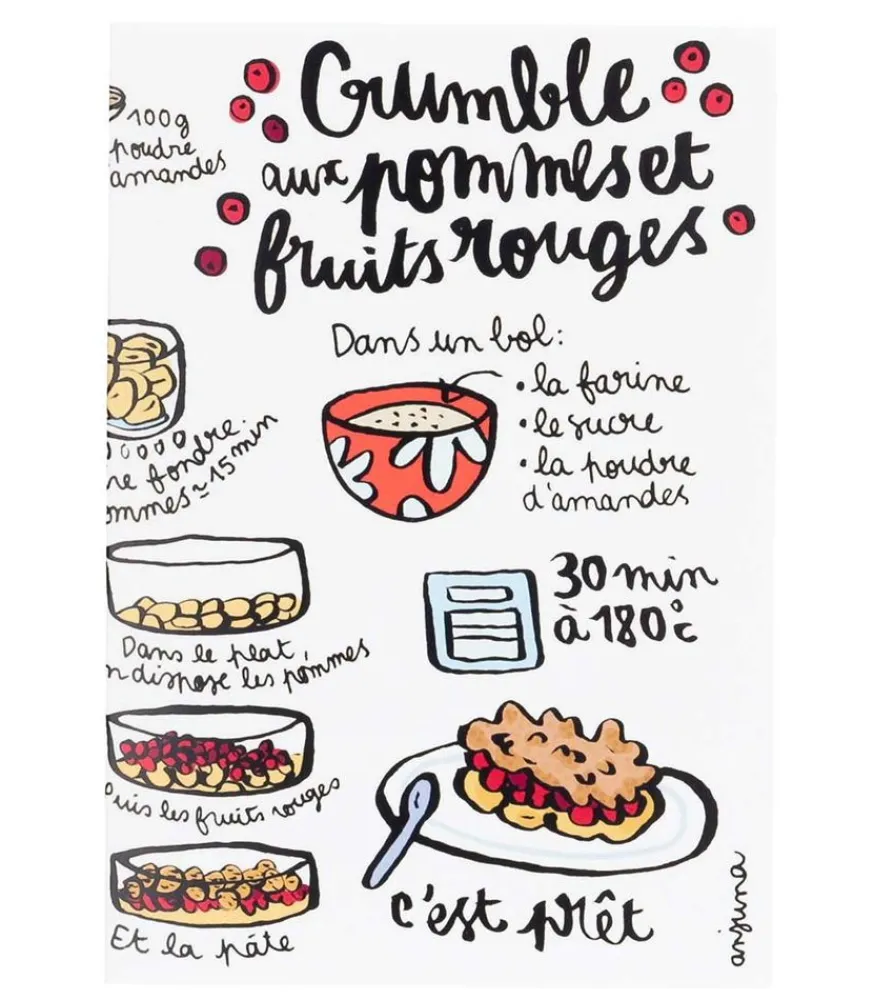 Crumble
aux pommes et
fruits rouges
100g
poudre
amandes
Dans un bol:
• la farine
• le sucre
• la poudre
d'amandes
fondre
≈ 15 min
30 min
à 180°c
Dans le plat,
dispose les pommes
Puis les fruits rouges
Et la pâte
c'est prêt
anjuna